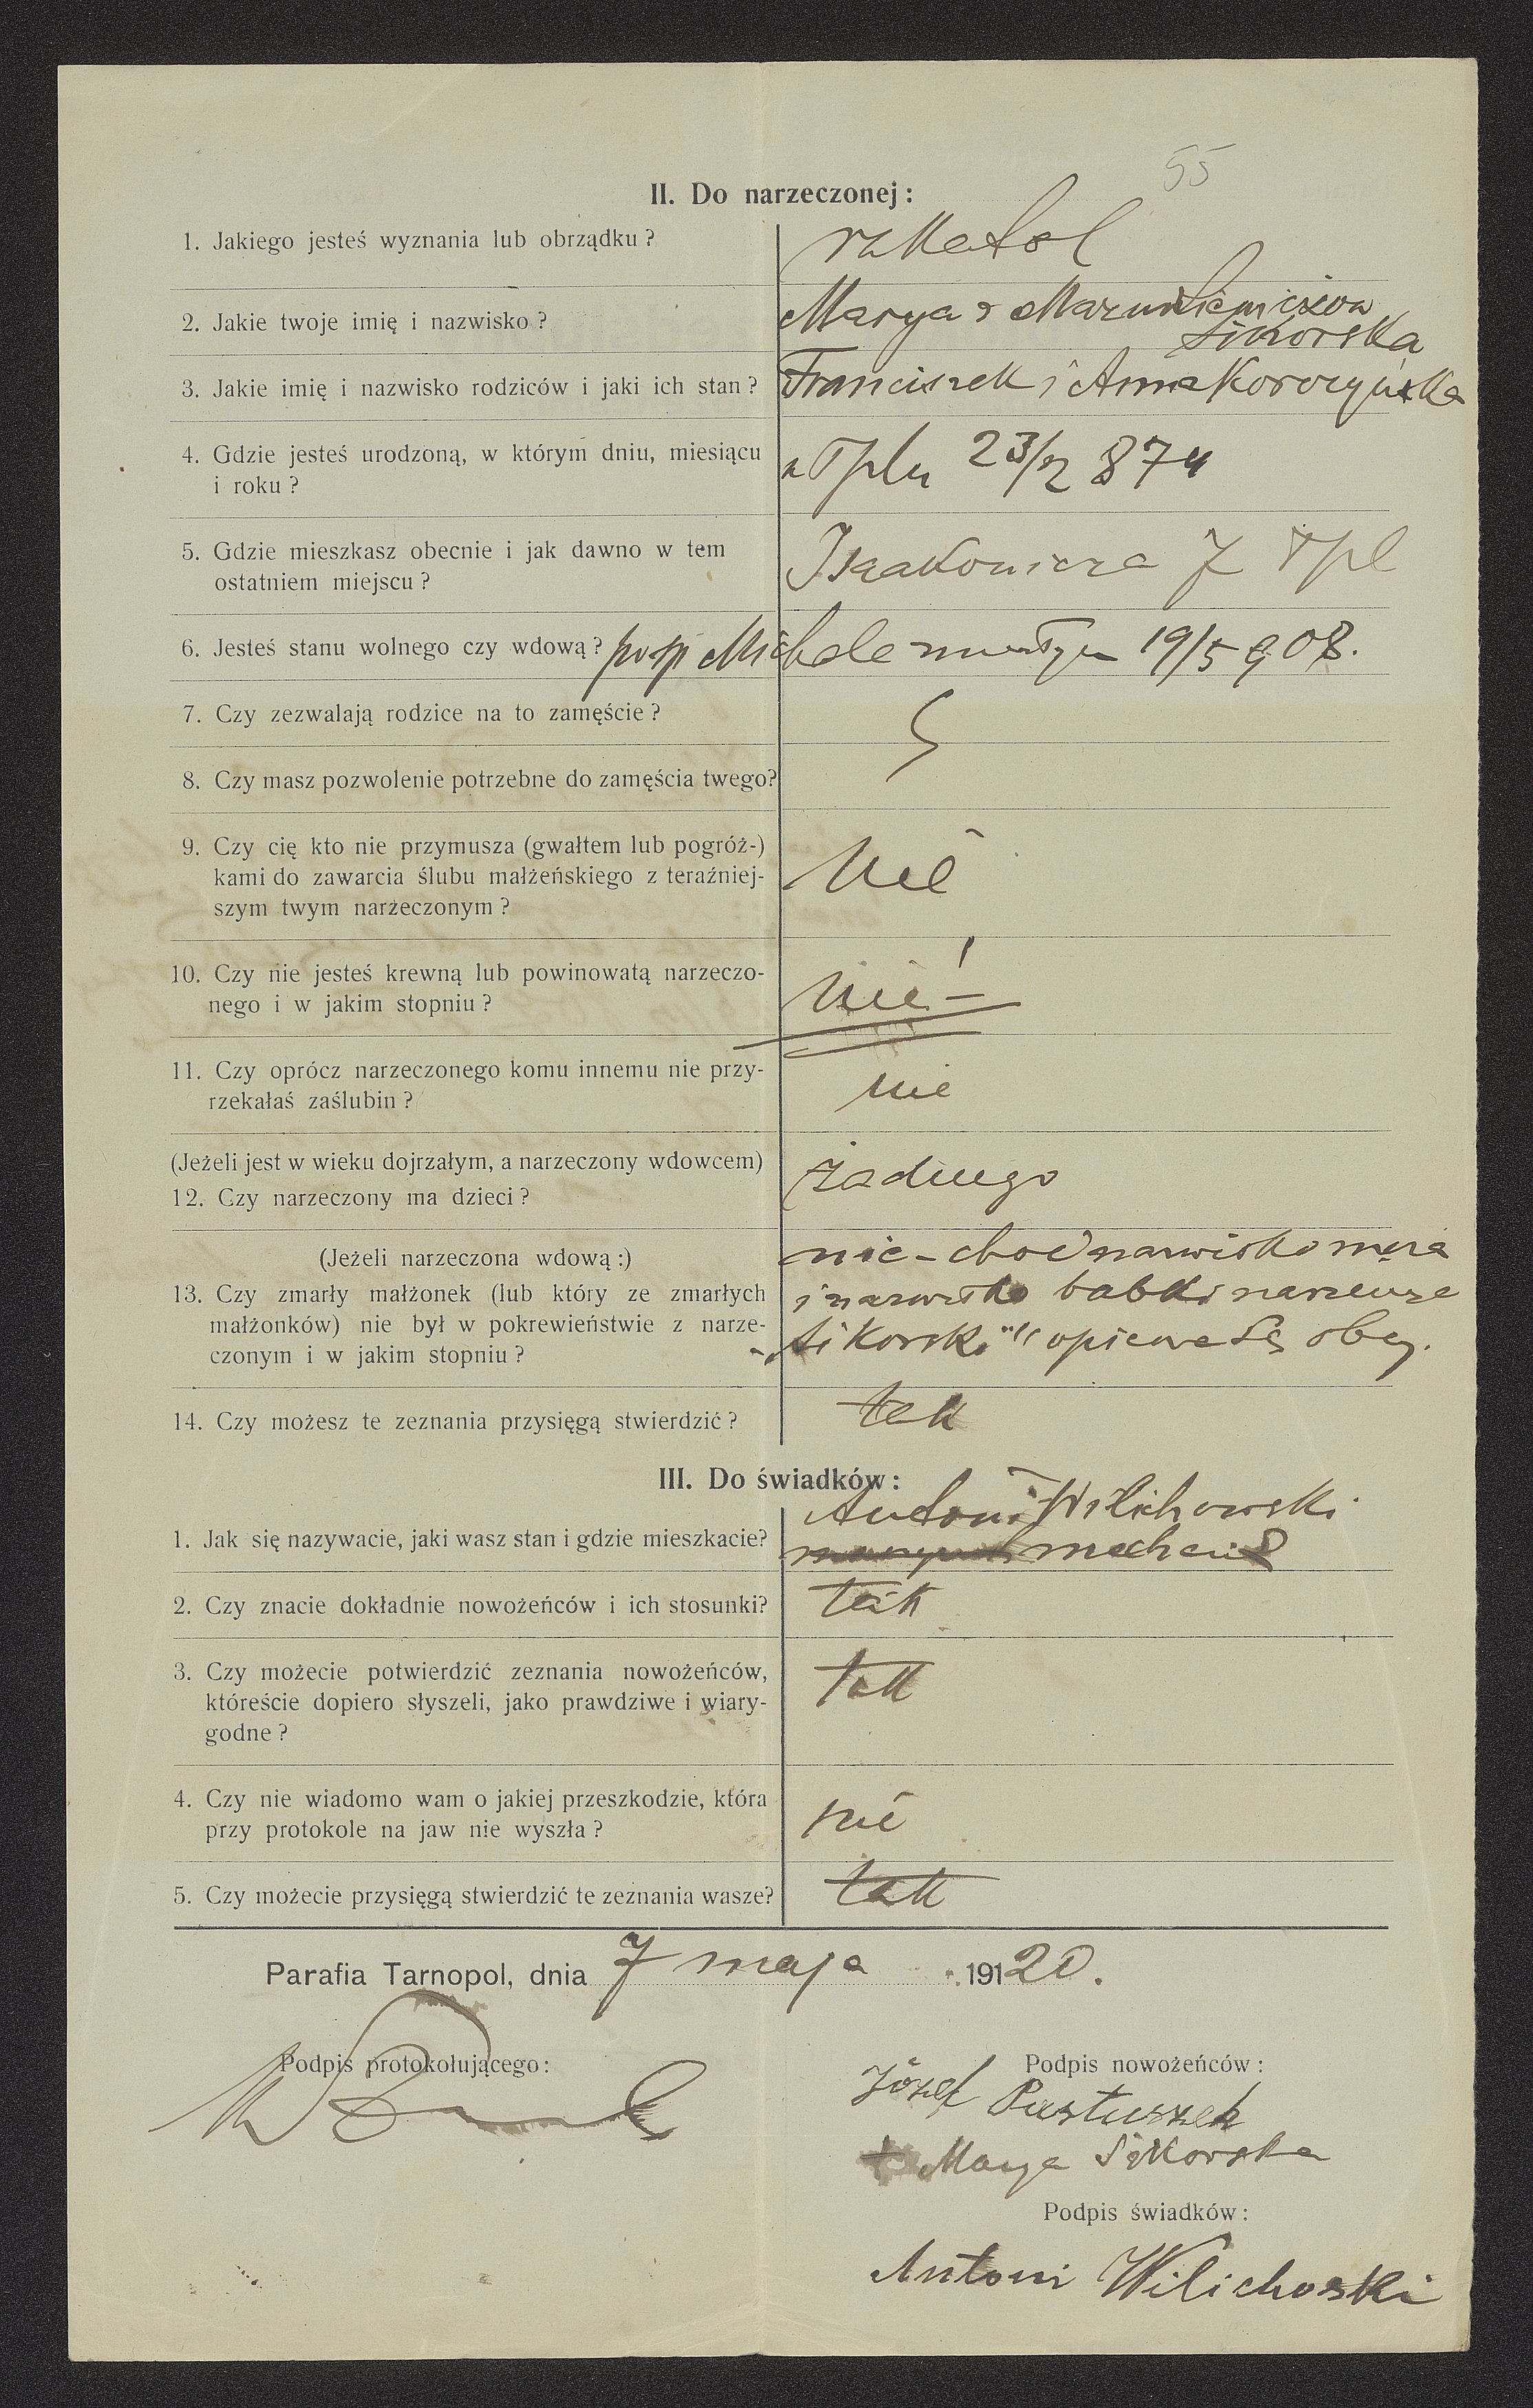 55
II. Do narzeczonej:
1. Jakiego jesteś wyznania lub obrządku?
2. Jakie twoje imię i nazwisko? Marya z
Sikorska
3. Jakie imię i nazwisko rodziców i jaki ich stan? Franciszek i Anna Koroczyńska
4. Gdzie jesteś urodzoną, w którym dniu, miesiącu
i roku? w Tplu 23/2 874
5. Gdzie mieszkasz obecnie i jak dawno w tem
ostatniem miejscu? 7 Tpl
6. Jesteś stanu wolnego czy wdową? po śp Michale zmarłym 19/5 908.
7. Czy zezwalają rodzice na to zamęście?
8. Czy masz pozwolenie potrzebne do zamęścia twego?
9. Czy cię kto nie przymusza (gwałtem lub pogróż-)
kami do zawarcia ślubu małżeńskiego z teraźniej-
szym twym narzeczonym? nie
10. Czy nie jesteś krewną lub powinowatą narzeczo-
nego i w jakim stopniu? nie –
11. Czy oprócz narzeczonego komu innemu nie przy-
rzekałaś zaślubin? nie
(Jeżeli jest w wieku dojrzałym, a narzeczony wdowcem)
12. Czy narzeczony ma dzieci? żadnego
(Jeżeli narzeczona wdową:)
13. Czy zmarły małżonek (lub który ze zmarłych
małżonków) nie był w pokrewieństwie z narze-
czonym i w jakim stopniu?
nie – choć nazwisko męża
i nazwisko babki
Sikorski"
14. Czy możesz te zeznania przysięgą stwierdzić? tak
III. Do świadków:
1. Jak się nazywacie, jaki wasz stan i gdzie mieszkacie? Antoni Wilichowski
2. Czy znacie dokładnie nowożeńców i ich stosunki? tak
3. Czy możecie potwierdzić zeznania nowożeńców,
któreście dopiero słyszeli, jako prawdziwe i wiary-
godne? tak
4. Czy nie wiadomo wam o jakiej przeszkodzie, która
przy protokole na jaw nie wyszła? nie
5. Czy możecie przysięgą stwierdzić te zeznania wasze? tak
Parafia Tarnopol, dnia 7 maja 19120.
Podpis protokołującego:
Podpis nowożeńców:
Józef Pastuszek
+ Marya Sikorska
Podpis świadków:
Antoni Wilichoski